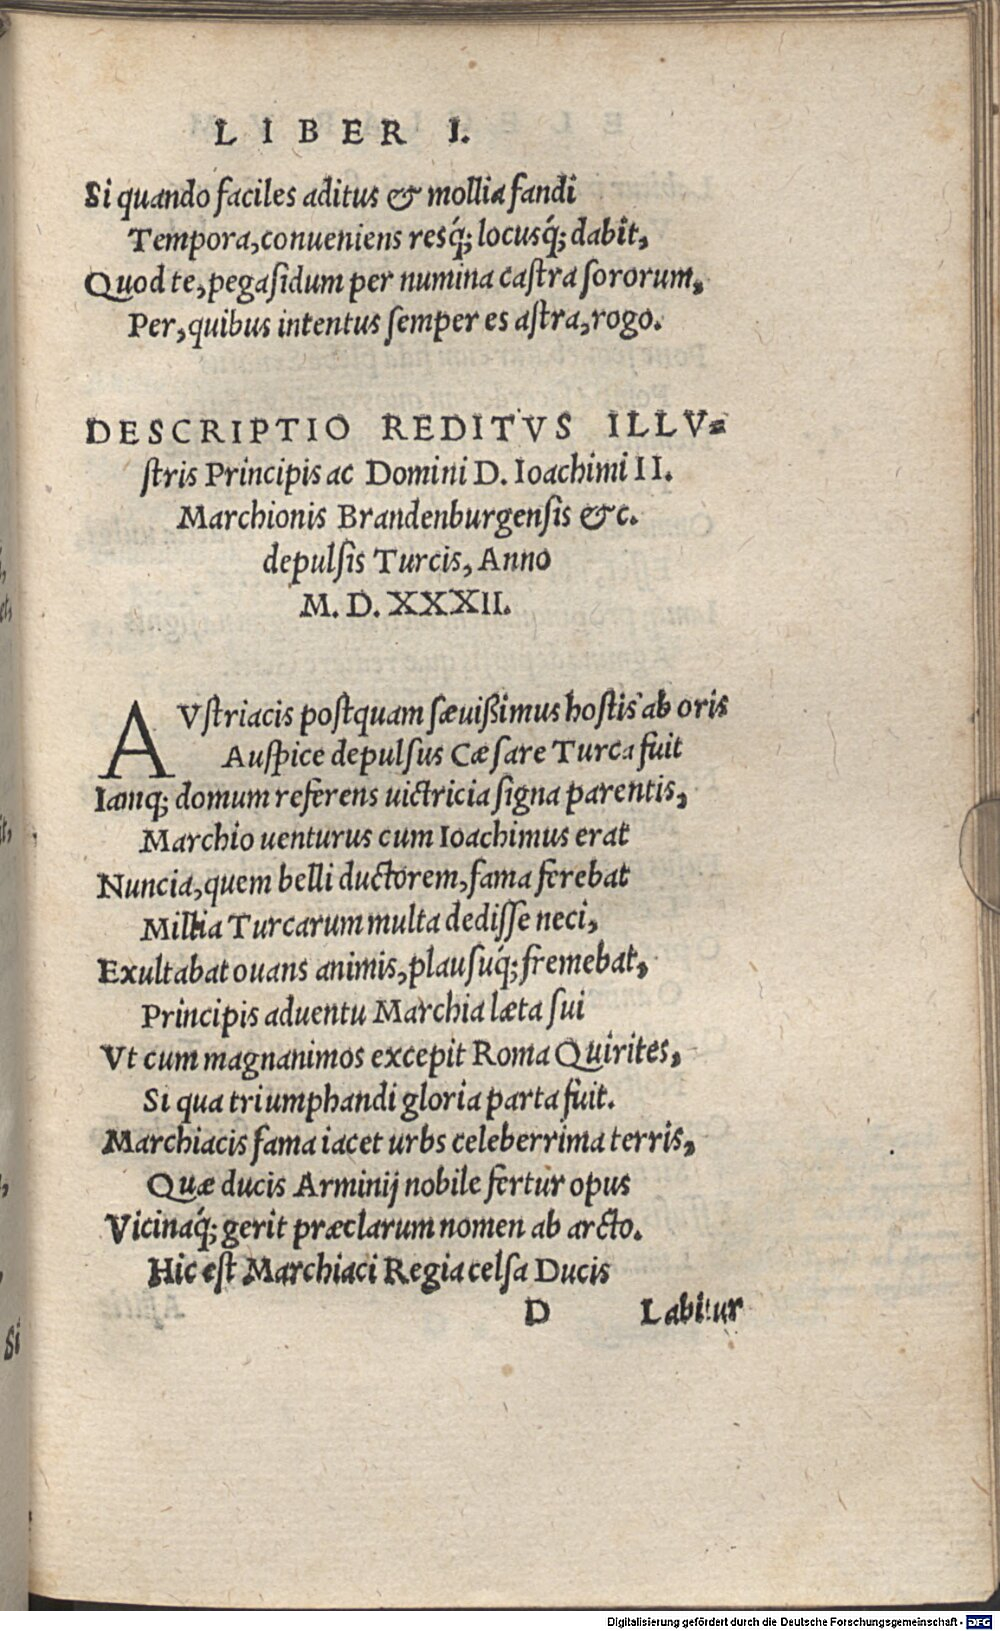 LIBER I.
Si quando faciles aditus & mollia fandi
Tempora, conueniens resq́; locusq́; dabit,
Quod te, pegasidum per numina castra sororum,
Per, quibus intentus semper es astra, rogo.
DESCRIPTIO REDITVS ILLV-
stris Principis ac Domini D. Ioachimi II.
Marchionis Brandenburgensis &c.
depulsis Turcis, Anno
M. D. XXXII.
AVstriacis postquam sæuißimus hostis ab oris
Auspice depulsus Cæsare Turca fuit
Iamq; domum referens uictricia signa parentis,
Marchio uenturus cum Ioachimus erat
Nuncia, quem belli ductorem, fama ferebat
Millia Turcarum multa dedisse neci,
Exultabat ouans animis, plausuq́; fremebat,
Principis aduentu Marchia læta sui
Vt cum magnanimos excepit Roma Quirites,
Si qua triumphandi gloria parta fuit.
Marchiacis fama iacet urbs celeberrima terris,
Quæ ducis Arminij nobile fertur opus
Vicinaq́; gerit præclarum nomen ab arcto.
Hic est Marchiaci Regia celsa Ducis
D Labitur
Si
Digitalisierung gefördert durch die Deutsche Forschungsgemeinschaft - DFG